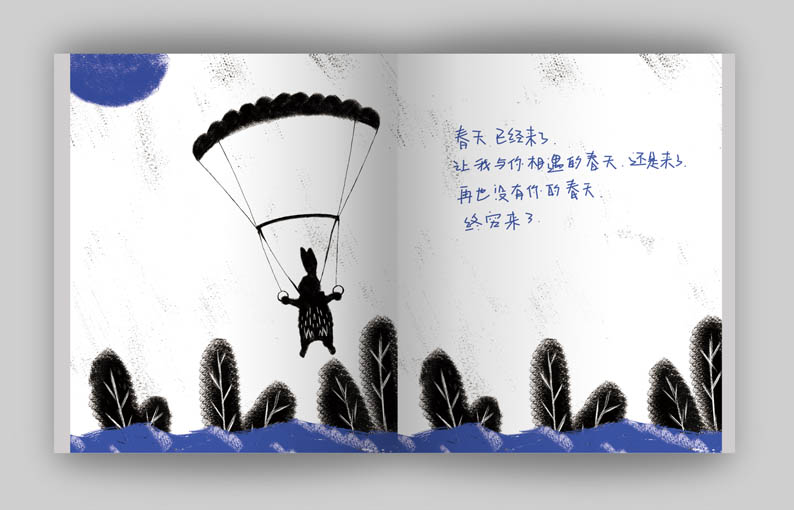 春天已经来了.
让我与你相遇的春天.还是来了.
再也没有你的春天.
终究来了.